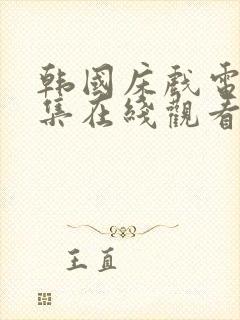 韩國床戲電
集在綫觀看
王直